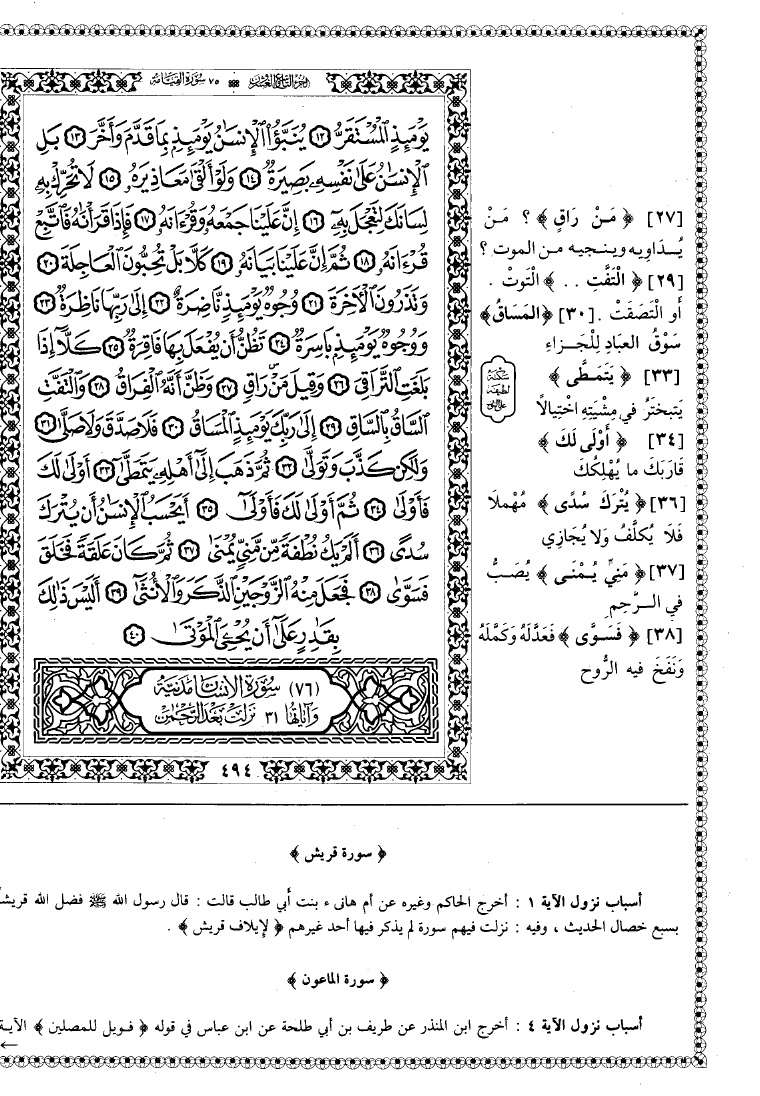 الجزء التاسع والعشرون ٧٥ سورة القيامة
يَوْمَئِذٍ ٱلْمُسْتَقَرُّ ١٢ يُنَبَّؤُا۟ ٱلْإِنسَٰنُ يَوْمَئِذٍۭ بِمَا قَدَّمَ وَأَخَّرَ ١٣ بَلِ
ٱلْإِنسَٰنُ عَلَىٰ نَفْسِهِۦ بَصِيرَةٌ ١٤ وَلَوْ أَلْقَىٰ مَعَاذِيرَهُۥ ١٥ لَا تُحَرِّكْ بِهِۦ
لِسَانَكَ لِتَعْجَلَ بِهِۦٓ ١٦ إِنَّ عَلَيْنَا جَمْعَهُۥ وَقُرْءَانَهُۥ ١٧ فَإِذَا قَرَأْنَٰهُ فَٱتَّبِعْ
قُرْءَانَهُۥ ١٨ ثُمَّ إِنَّ عَلَيْنَا بَيَانَهُۥ ١٩ كَلَّا بَلْ تُحِبُّونَ ٱلْعَاجِلَةَ ٢٠
وَتَذَرُونَ ٱلْأَخِرَةَ ٢١ وُجُوهٌ يَوْمَئِذٍ نَّاضِرَةٌ ٢٢ إِلَىٰ رَبِّهَا نَاظِرَةٌ ٢٣
وَوُجُوهٌ يَوْمَئِذٍۭ بَاسِرَةٌ ٢٤ تَظُنُّ أَن يُفْعَلَ بِهَا فَاقِرَةٌ ٢٥ كَلَّآ إِذَا
بَلَغَتِ ٱلتَّرَاقِىَ ٢٦ وَقِيلَ مَنْ رَاقٍ ٢٧ وَظَنَّ أَنَّهُ ٱلْفِرَاقُ ٢٨ وَٱلْتَفَّتِ
ٱلسَّاقُ بِٱلسَّاقِ ٢٩ إِلَىٰ رَبِّكَ يَوْمَئِذٍ ٱلْمَسَاقُ ٣٠ فَلَا صَدَّقَ وَلَا صَلَّىٰ ٣١
وَلَٰكِن كَذَّبَ وَتَوَلَّىٰ ٣٢ ثُمَّ ذَهَبَ إِلَىٰٓ أَهْلِهِۦ يَتَمَطَّىٰٓ ٣٣ أَوْلَىٰ لَكَ
فَأَوْلَىٰ ٣٤ ثُمَّ أَوْلَىٰ لَكَ فَأَوْلَىٰٓ ٣٥ أَيَحْسَبُ ٱلْإِنسَٰنُ أَن يُتْرَكَ
سُدًى ٣٦ أَلَمْ يَكُ نُطْفَةً مِّن مَّنِىٍّ يُمْنَىٰ ٣٧ ثُمَّ كَانَ عَلَقَةً فَخَلَقَ
فَسَوَّىٰ ٣٨ فَجَعَلَ مِنْهُ ٱلزَّوْجَيْنِ ٱلذَّكَرَ وَٱلْأُنثَىٰٓ ٣٩ أَلَيْسَ ذَٰلِكَ
بِقَٰدِرٍ عَلَىٰٓ أَن يُحْۦِىَ ٱلْمَوْتَىٰ ٤٠
(٧٦) سورة الإنسان مدنية
وآياتها ٣١ نزلت بعد الرحمن
٤٩٤
[٢٧] ﴿ مَنْ رَاقٍ ﴾ ؟ مَنْ
يُدَاوِيه وينجيه من الموت ؟
[٢٩] ﴿ الْتَفَّتِ . . ﴾ الْتَوتْ .
أو الْتَصَقَتْ . [٣٠] ﴿المَسَاقُ﴾
سَوْقُ العبَادِ لِلْجَزاءِ
[٣٣] ﴿ يَتَمَطَّى ﴾
يَتبختَرُ في مِشْيَتِهِ اخْتِيالاً
سكتة
لطيفة
[٣٤] ﴿ أَوْلَى لَكَ ﴾
قَارَبَكَ ما يُهْلِكُكَ
[٣٦] ﴿ يُتْرَكَ سُدًى ﴾ مُهْمَلاً
فَلاَ يُكلَّفُ وَلا يُجَازِي
[٣٧] ﴿ مَنِيٍّ يُمْنَى ﴾ يُصَبُّ
في الرَّحِمِ
[٣٨] ﴿ فَسَوَّى ﴾ فَعَدَّلَهُ وَكَمَّلَهُ
وَنَفَخَ فيه الرُّوح
﴿ سورة قريش ﴾
أسباب نزول الآية ١ : أخرج الحاكم وغيره عن أم هانىء بنت أبي طالب قالت : قال رسول الله ﷺ فضل الله قريشاً
بسبع خصال الحديث ، وفيه : نزلت فيهم سورة لم يذكر فيها أحد غيرهم ﴿ لإيلاف قريش ﴾ .
﴿ سورة الماعون ﴾
أسباب نزول الآية ٤ : أخرج ابن المنذر عن طريف بن أبي طلحة عن ابن عباس في قوله ﴿ فويل للمصلين ﴾ الآية
←